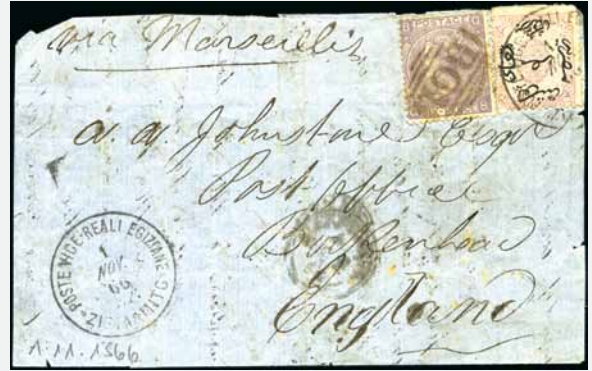 via Marseilles
POSTAGE
B01
A. A. Johnstone Esqr
Post Office
Birkenhead
England
POSTE VICE-REALI EGIZIANE
1
NOV.
66
1.11.1866